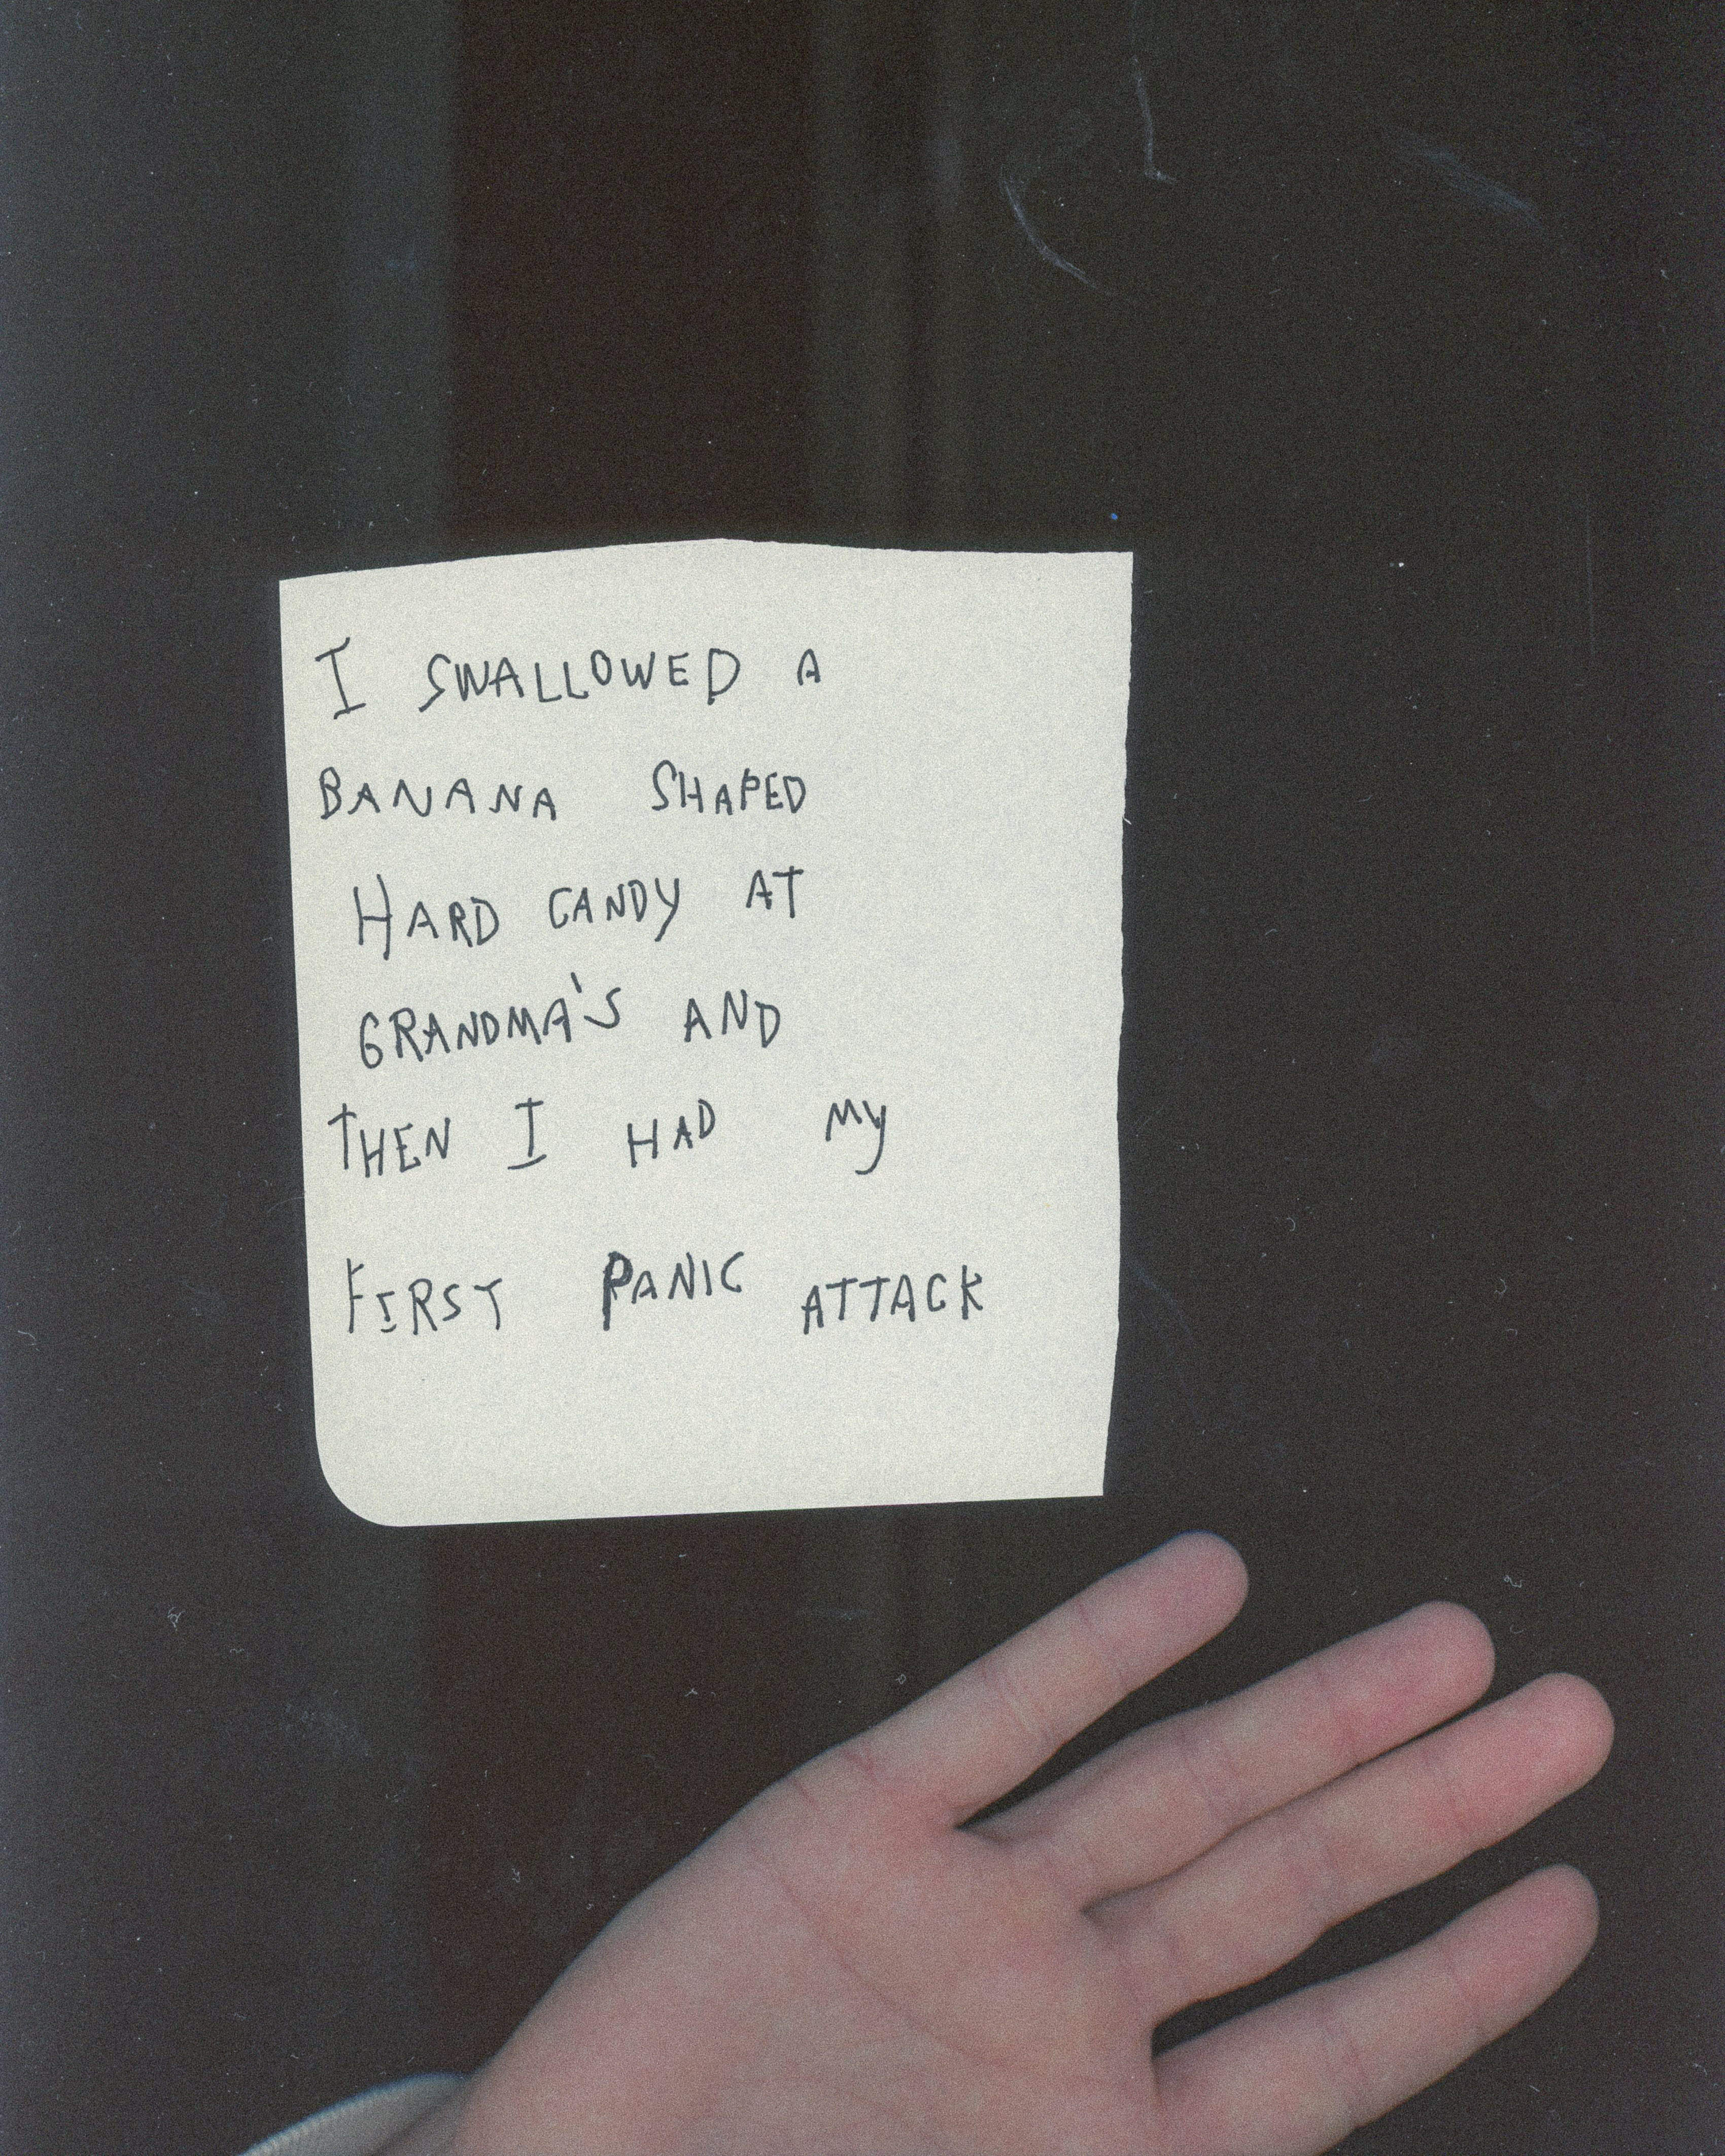 I SWALLOWED A
BANANA SHAPED
HARD CANDY AT
GRANDMA'S AND
THEN I HAD MY
FIRST PANIC ATTACK